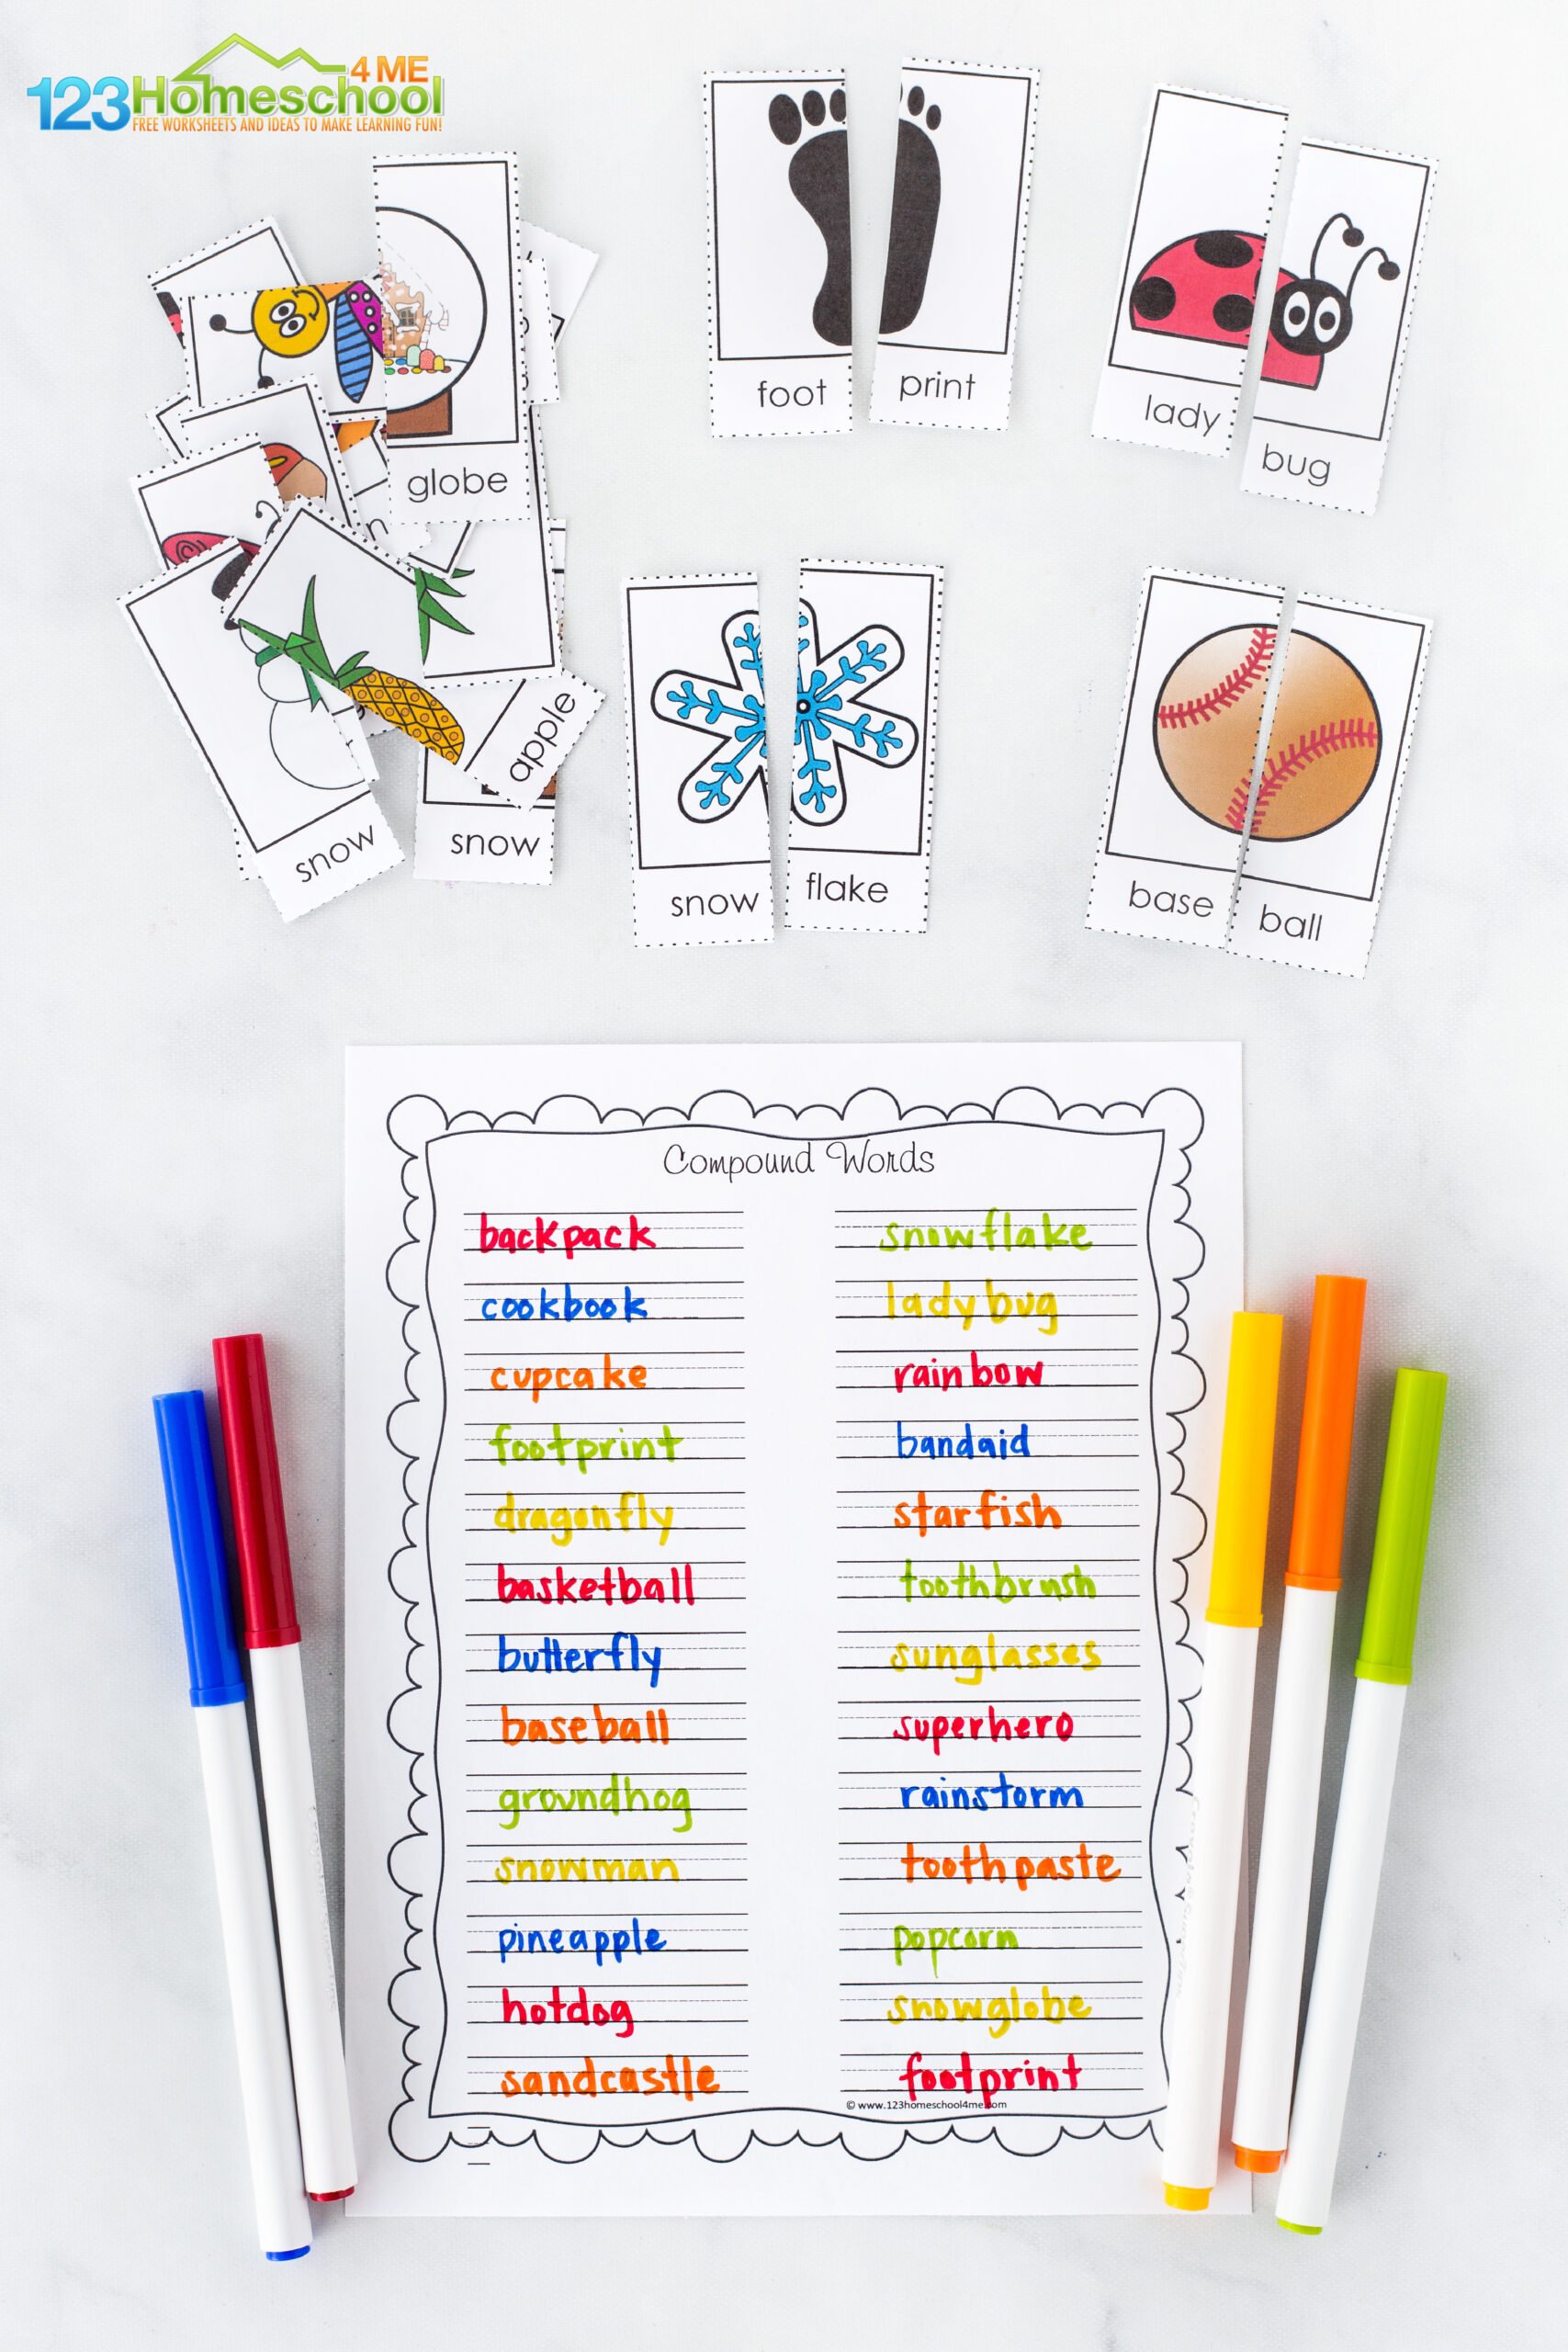 4 ME
123 Homeschool
FREE WORKSHEETS AND IDEAS TO MAKE LEARNING FUN!
foot
print
lady
bug
globe
apple
snow
snow
snow
flake
base
ball
Compound Words
backpack
cookbook
cupcake
footprint
dragonfly
basketball
butterfly
baseball
groundhog
snowman
pineapple
hotdog
sandcastle
snowflake
ladybug
rainbow
bandaid
starfish
toothbrush
sunglasses
superhero
rainstorm
toothpaste
popcorn
snowglobe
footprint
© www.123homeschool4me.com